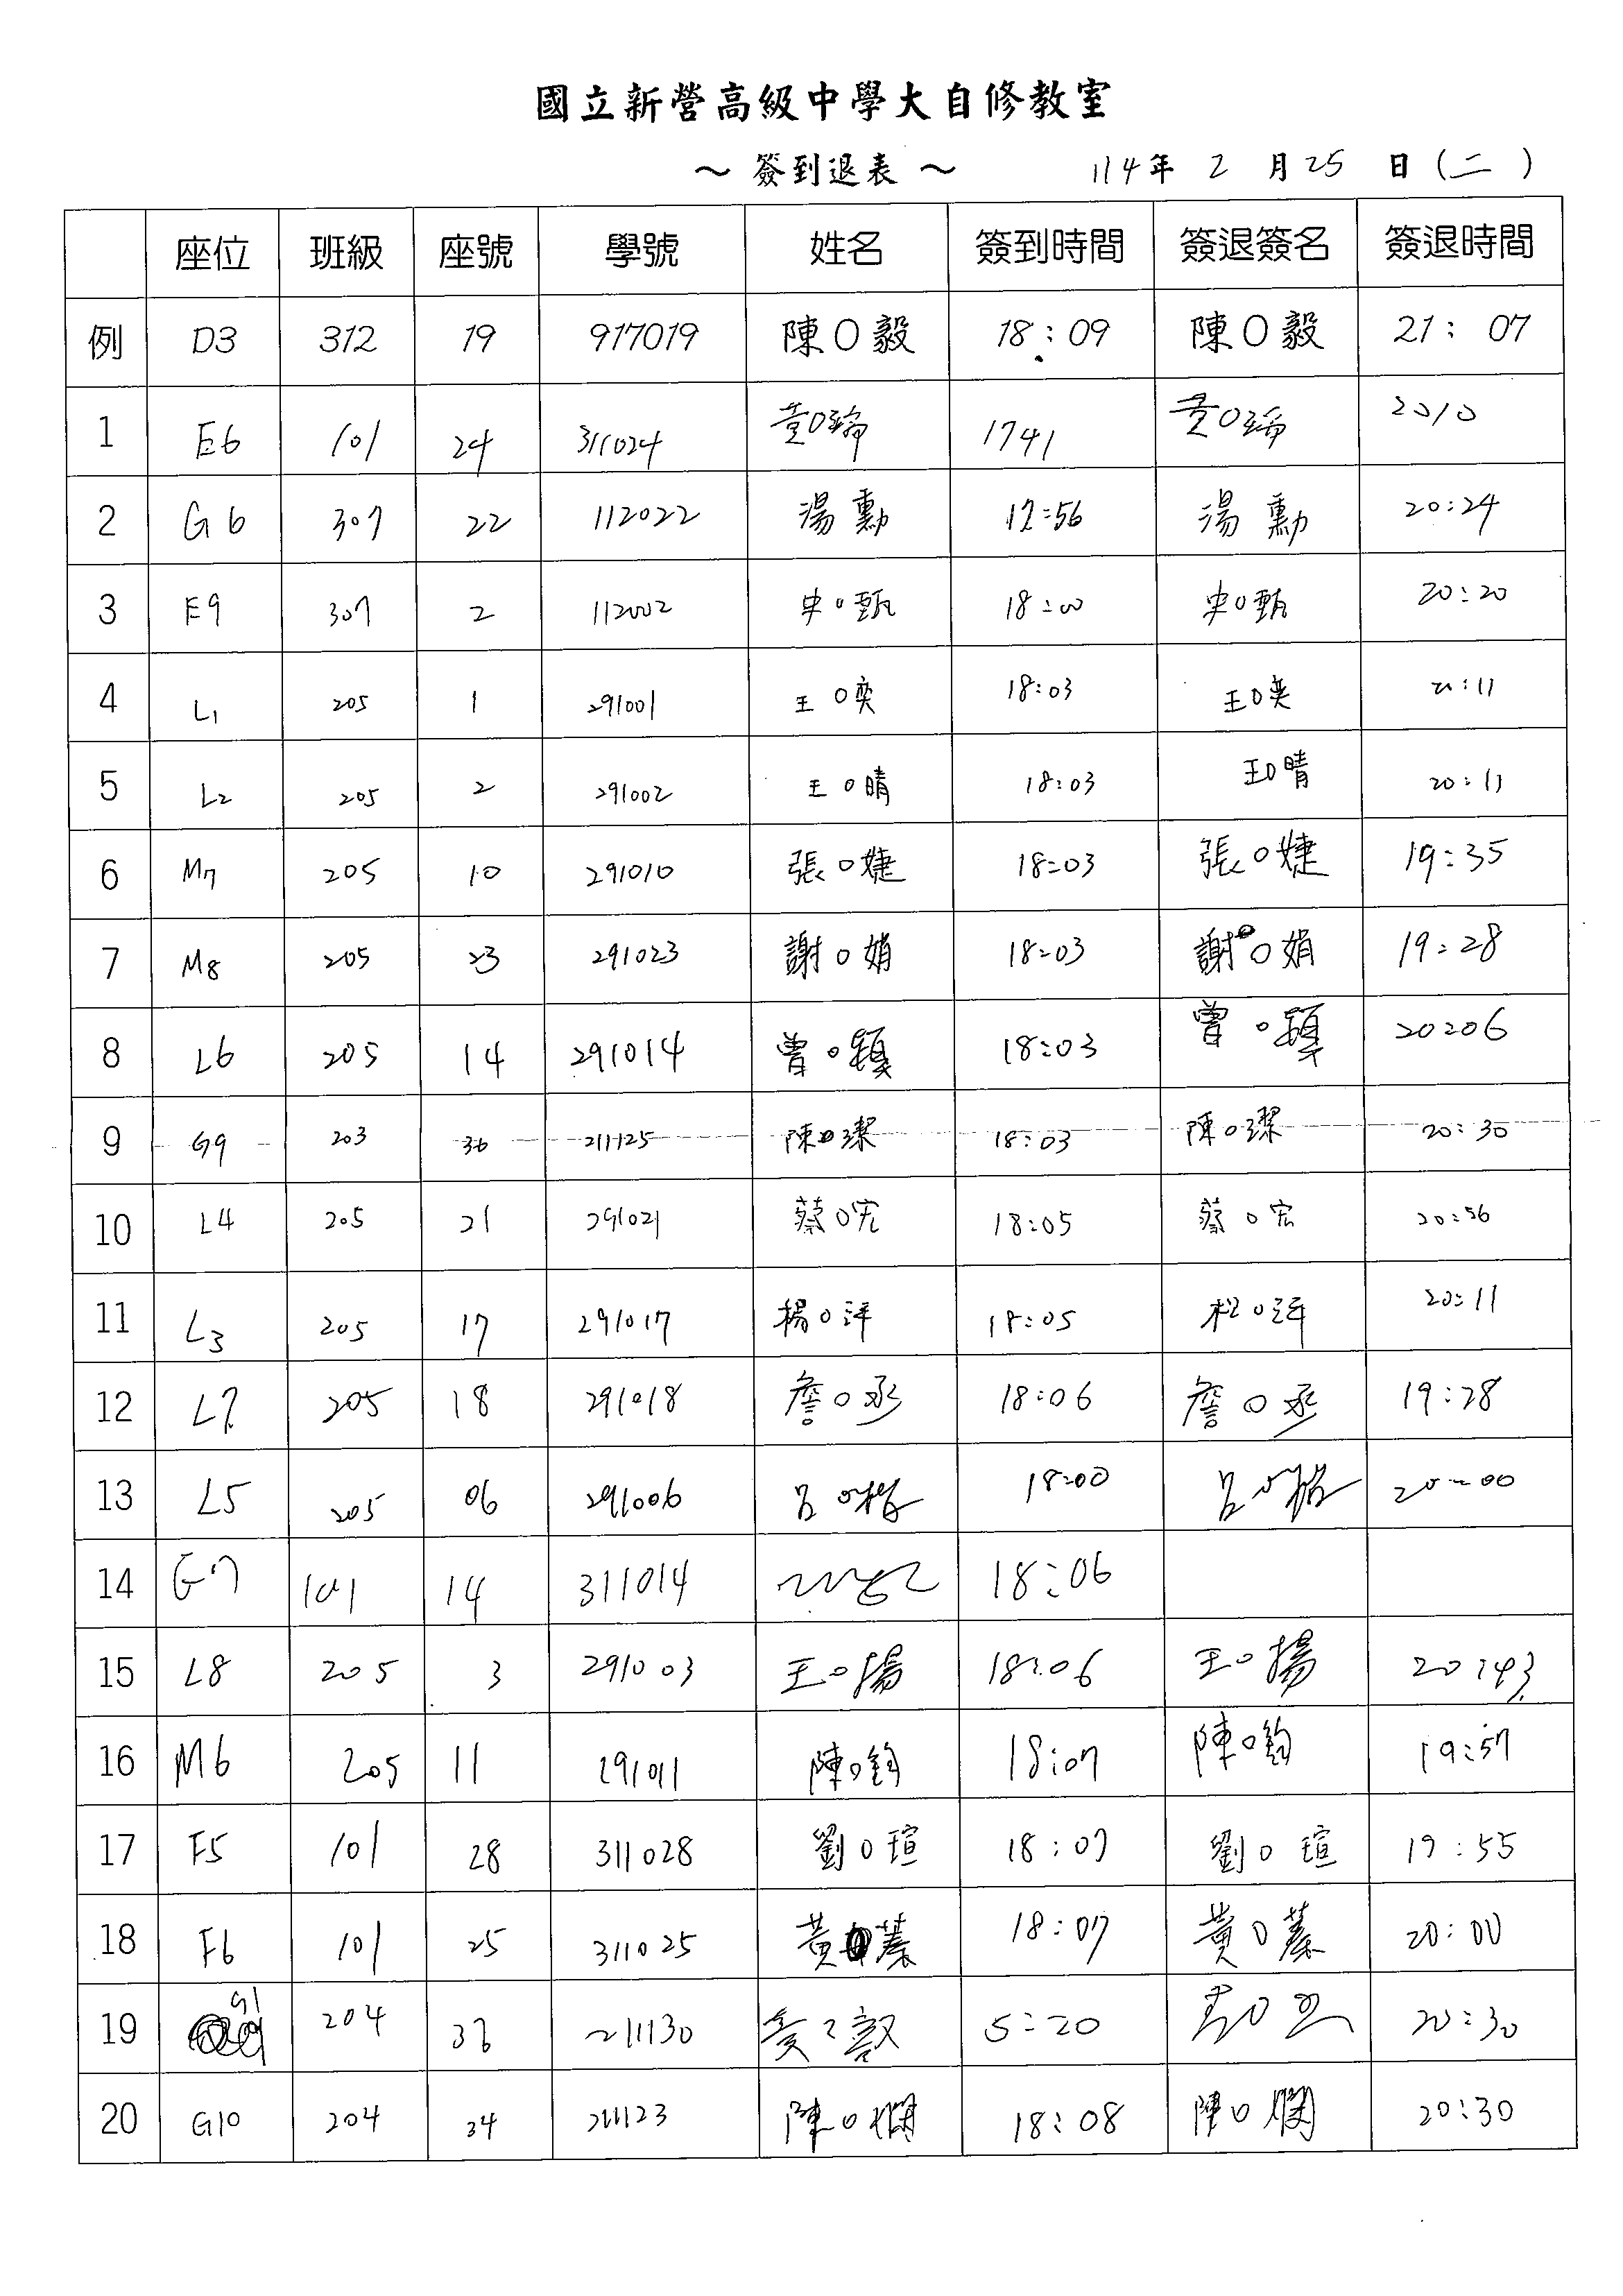 國立新營高級中學大自修教室
～ 簽到退表 ～ 114年 2 月 25 日 (二)
座位 班級 座號 學號 姓名 簽到時間 簽退簽名 簽退時間
例 D3 312 19 917019 陳O毅 18:09 陳O毅 21:07
1 E6 101 24 311024 黃O 1741 黃O 2010
2 G6 307 22 112022 湯勳 17:56 湯勳 20:24
3 E9 307 2 112002 O甄 18:00 O甄 20:20
4 L1 205 1 291001 王O奕 18:03 王O奕 20:11
5 L2 205 2 291002 王O晴 18:03 王O晴 20:11
6 M7 205 10 291010 張O婕 18:03 張O婕 19:35
7 M8 205 23 291023 謝O娟 18:03 謝O娟 19:28
8 L6 205 14 291014 曾O 18:03 曾O 20:06
9 G9 203 36 211125 陳O潔 18:03 陳O潔 20:30
10 L4 205 21 291021 蔡O宏 18:05 蔡O宏 20:56
11 L3 205 17 291017 楊O 18:05 O 20:11
12 L7 205 18 291018 詹O丞 18:06 詹O丞 19:28
13 L5 205 06 291006 呂O 18:00 呂O 20:00
14 G7 101 14 311014 18:06
15 L8 205 3 291003 王O揚 18:06 王O揚 20:43
16 M6 205 11 291011 陳O鈞 18:07 陳O鈞 19:57
17 F5 101 28 311028 劉O瑄 18:07 劉O瑄 19:55
18 F6 101 25 311025 黃O蓁 18:07 黃O蓁 20:00
19 G1 204 36 211130 5:20 20:30
20 G10 204 34 211123 陳O嫻 18:08 陳O嫻 20:30